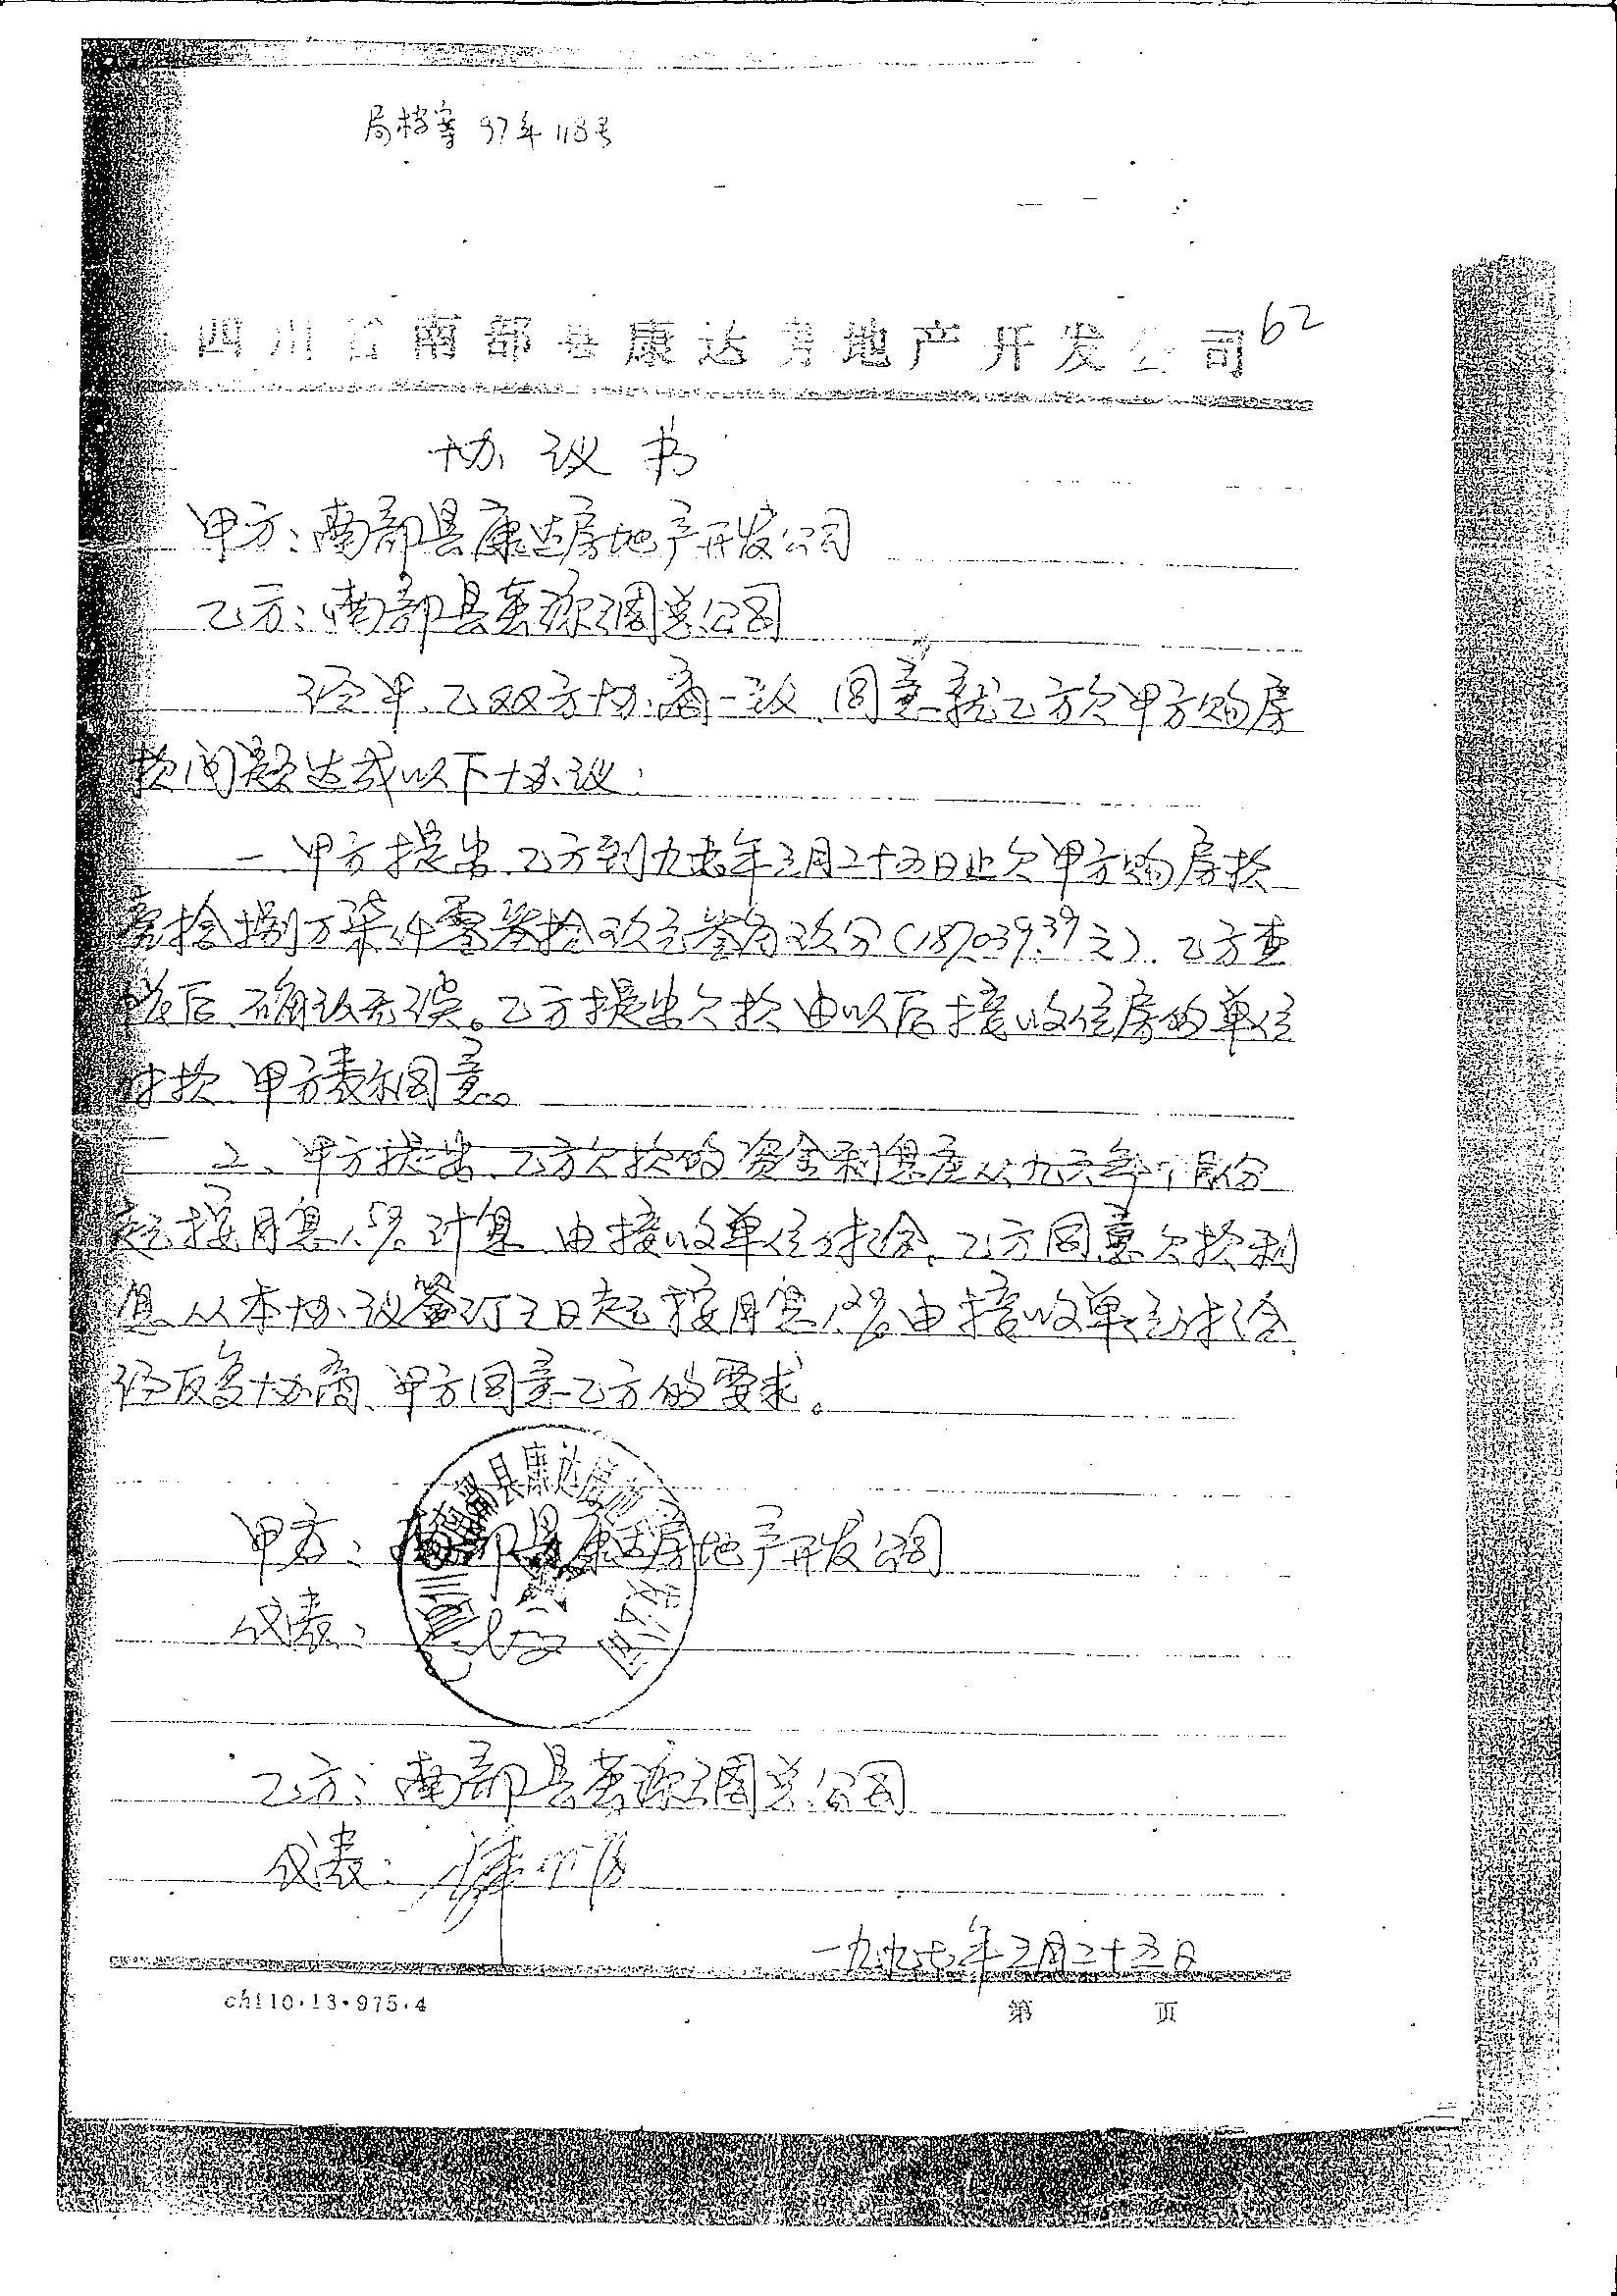 局档案 97年118号
四川省南部县康达房地产开发公司 62
协议书
甲方：南部县康达房地产开发公司
乙方：南部县蚕丝绸总公司
经甲、乙双方协商一致，同意就乙方欠甲方购房
款问题达成以下协议：
一、甲方提出，乙方到九七年三月二十五日止欠甲方购房款
壹拾捌万柒仟零叁拾玖元叁角玖分（187039.39元）．乙方查
后，确认无误。乙方提出欠款由以后接收住房的单位
付款，甲方表示同意。
二、甲方提出，乙方欠款的资金利息应从九六年 月份
起按月息1.5%计算，由接收单位付给，乙方同意欠款利
息从本协议签订之日起按月息1.2%由接收单位付给，
经反复协商，甲方同意乙方的要求。
甲方：南部县康达房地产开发公司
代表：
乙方：南部县蚕丝绸总公司
代表：
一九九七年三月二十五日
ch110·13·975·4 第 页